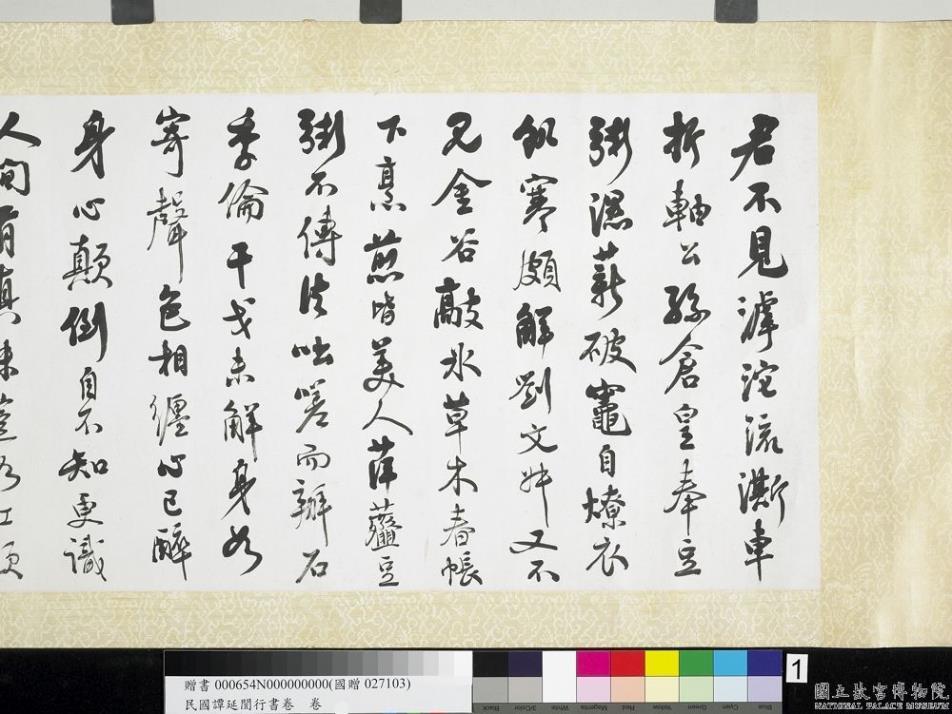 君不見滹沱流澌車
折軸公孫倉皇奉豆
粥濕薪破竈自燎衣
飢寒頗解劉文叔又不
見金谷敲冰草木春帳
下烹煎皆美人萍虀豆
粥不傳法咄嗟而辦石
季倫干戈未解身如
寄聲色相纏心已醉
身心顛倒自不知更識
人間有真味豈如江頃
贈書 000654N000000000(國贈 027103)
民國譚延闓行書卷 卷
Black
3/Color
White
Magenta
Red
Yellow
Green
Cyan
Blue
1
國立故宮博物院
NATIONAL PALACE MUSEUM